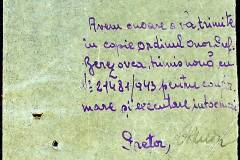 Avem onoare a vă trimite
in copie ordinul Onor. Pref.
Berezovca, trimis nouă cu
№ 21487/943 pentru confor
mare și executare intocmai
Pretor,